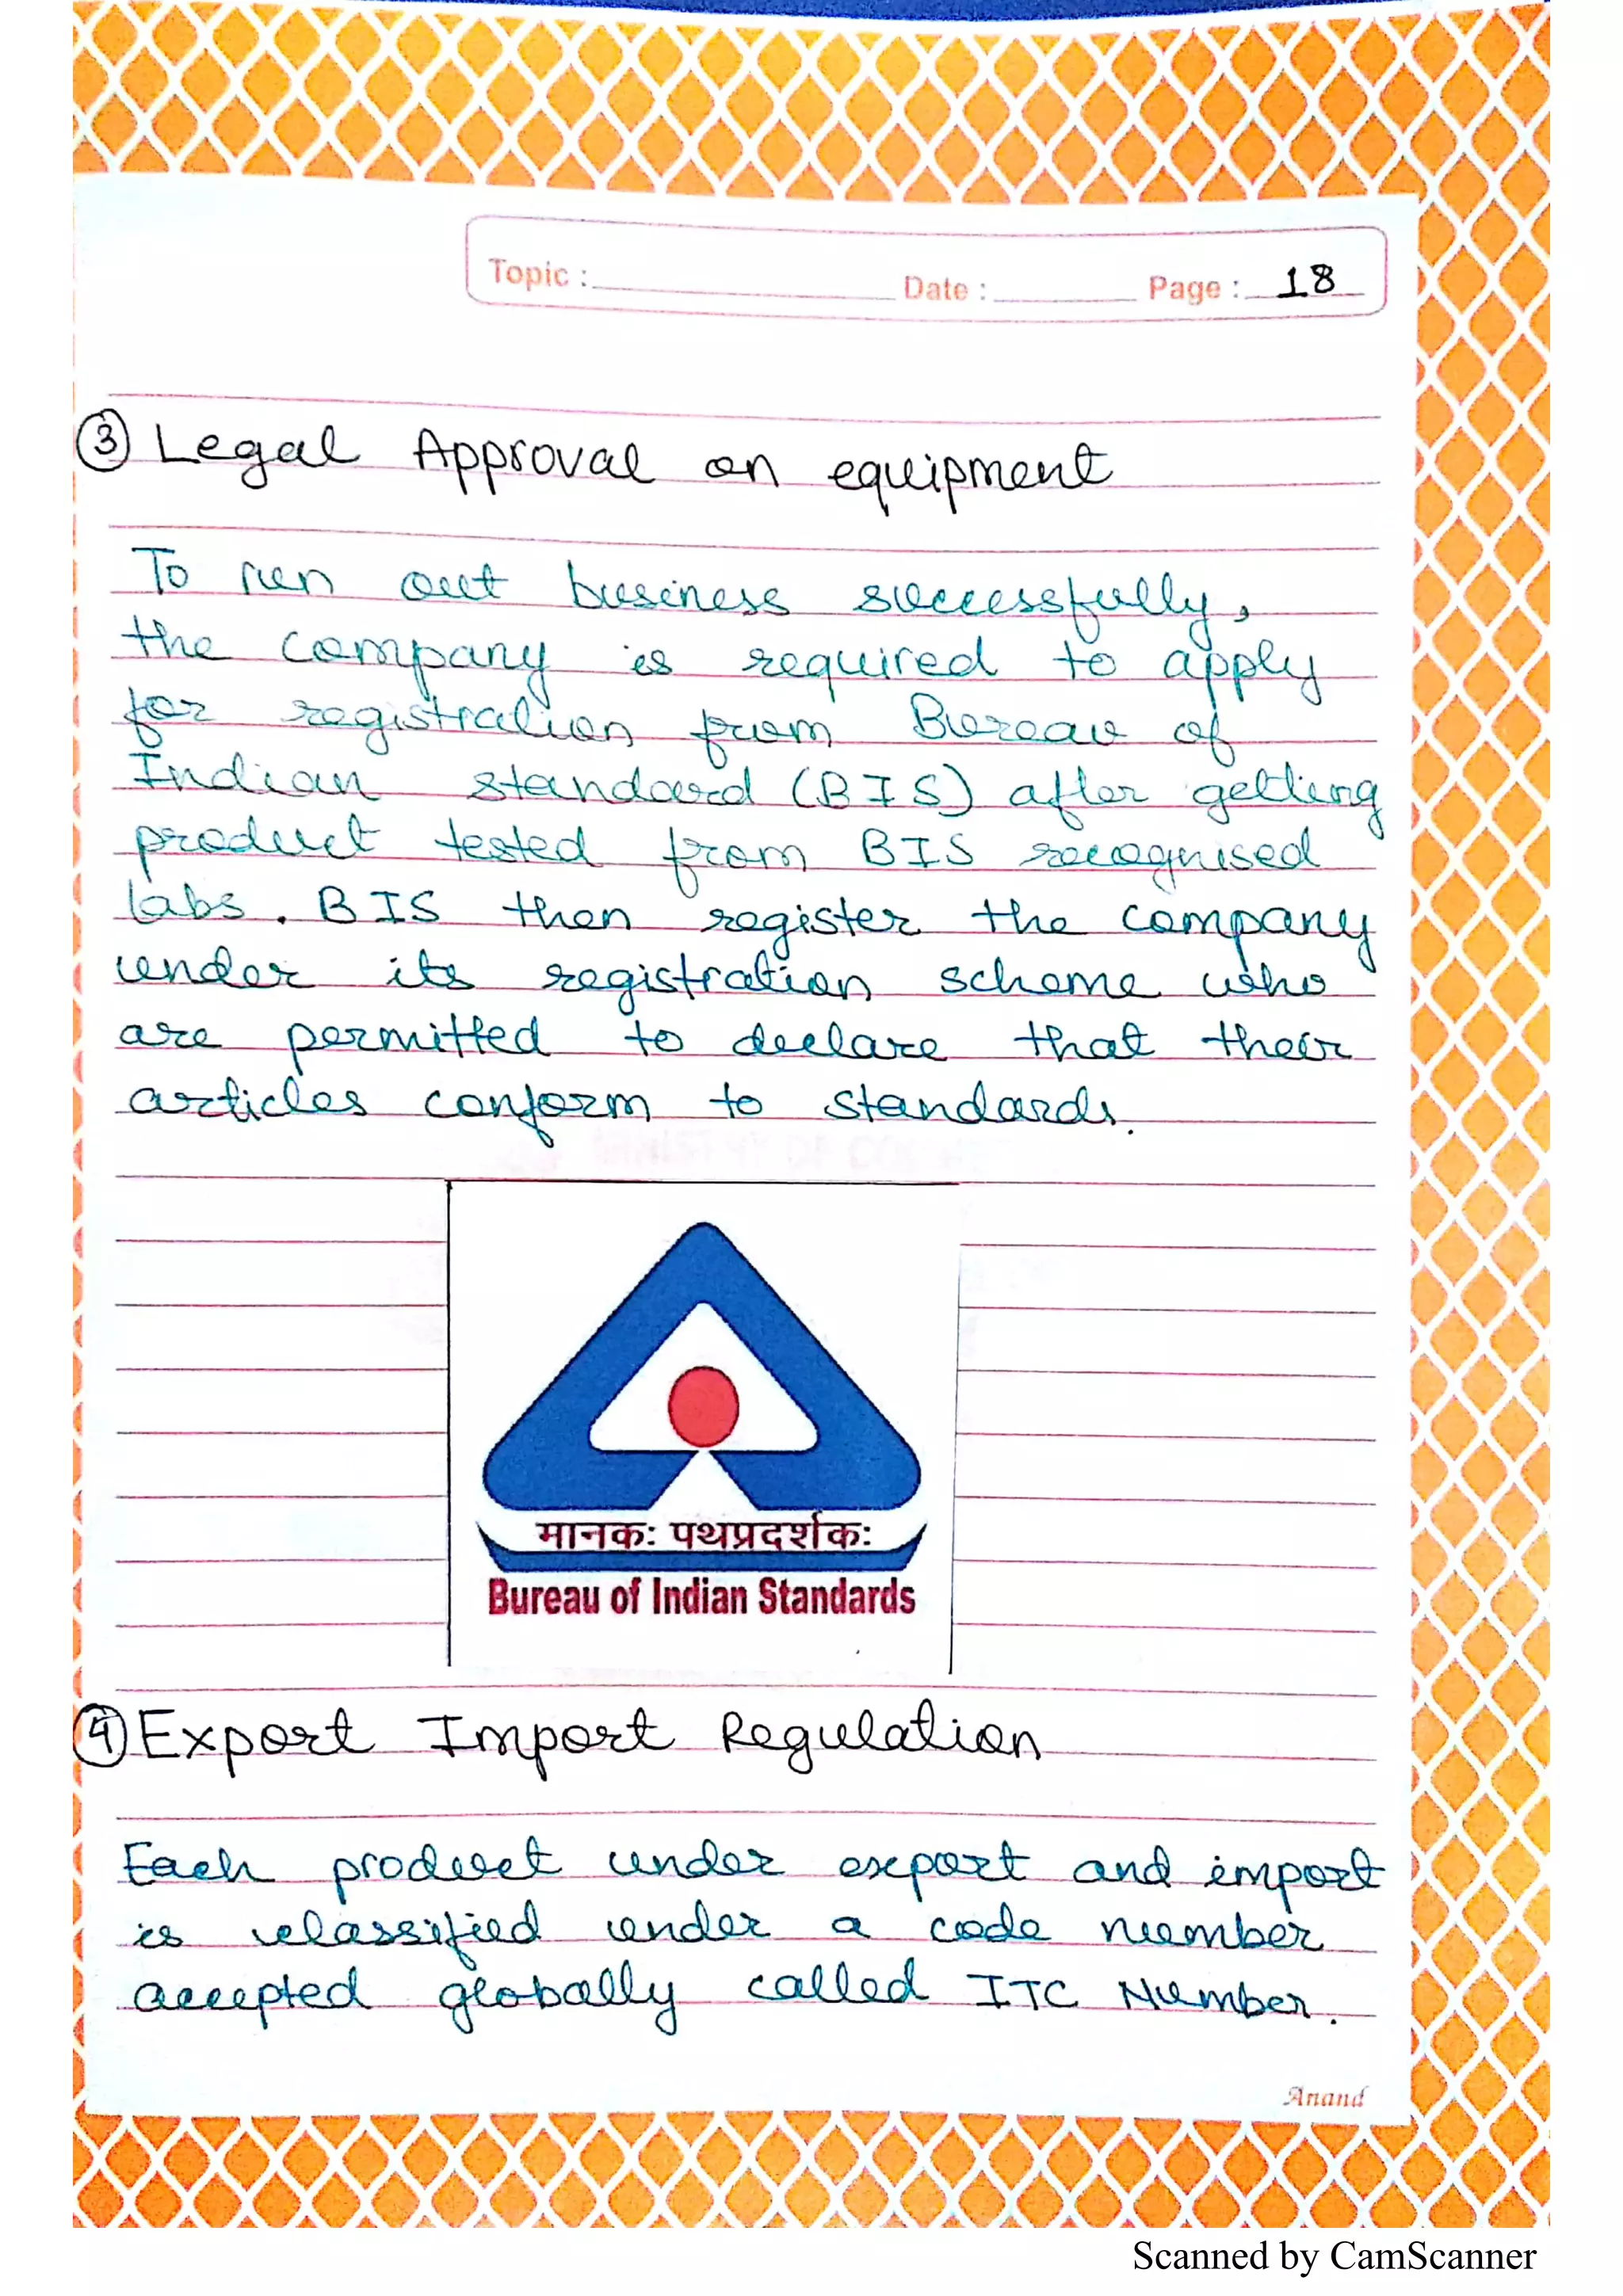 Topic : Date : Page : 18
③ Legal Approval on equipment
To run out business successfully,
the company is required to apply
for registration from Bureau of
Indian standard (BIS) after getting
product tested from BIS recognised
labs. BIS then register the company
under its registration scheme who
are permitted to declare that their
articles conform to standards.
मानकः पथप्रदर्शकः
Bureau of Indian Standards
④ Export Import Regulation
Each product under export and import
is classified under a code number
accepted globally called ITC Number.
Anand
Scanned by CamScanner